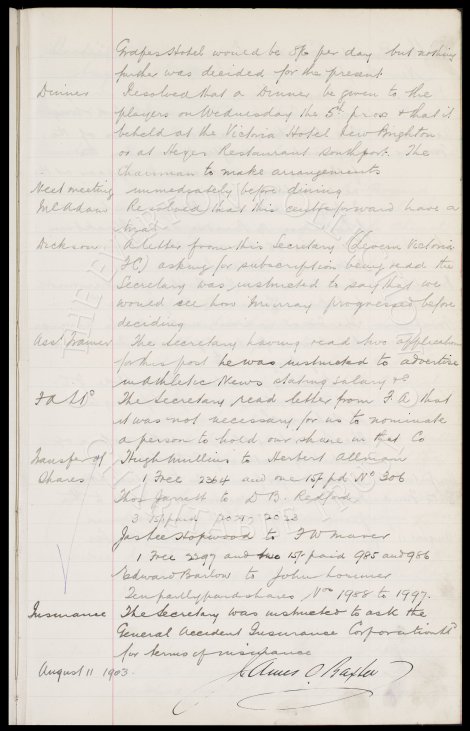 Grapes Hotel would be 8/- per day but nothing
further was decided for the present
Dinner Resolved that a Dinner be given to the
players on Wednesday the 5th prox & that it
be held at the Victoria Hotel New Brighton
or at Heyes Restaurant Southport. The
Chairman to make arrangements
Next meeting immediately before dining.
McAdam Resolved that this centre forward have a
trial
Dickson. A letter from this Secretary (Govern Victoria
FC) asking for subscription being read the
Secretary was instructed to say that we
would see how Murray progressed before
deciding
Asst Trainer The Secretary having read two application
for this post he was instructed to advertise
in Athletic News stating salary &c
The Secretary read letter from F.A. that
it was not necessary for us to nominate
a person to hold our share in that Co
Transfer of Hugh Mullins to Herbert Allman
Shares 1 Free 2364 and one 15/- pd No 306
Thos Garrett to D B. Redford
3 15/- paid
Jas Lee Hopwood to
1 Free 2297 and two 15/- paid 985 and 986
Edward Barlow to John
Ten partly paid shares Nos 1988 to 1997.
Insurance The Secretary was instructed to ask the
General Accident Insurance Corporation Ld
for terms of insurance
August 11 1903. James C. Baxter